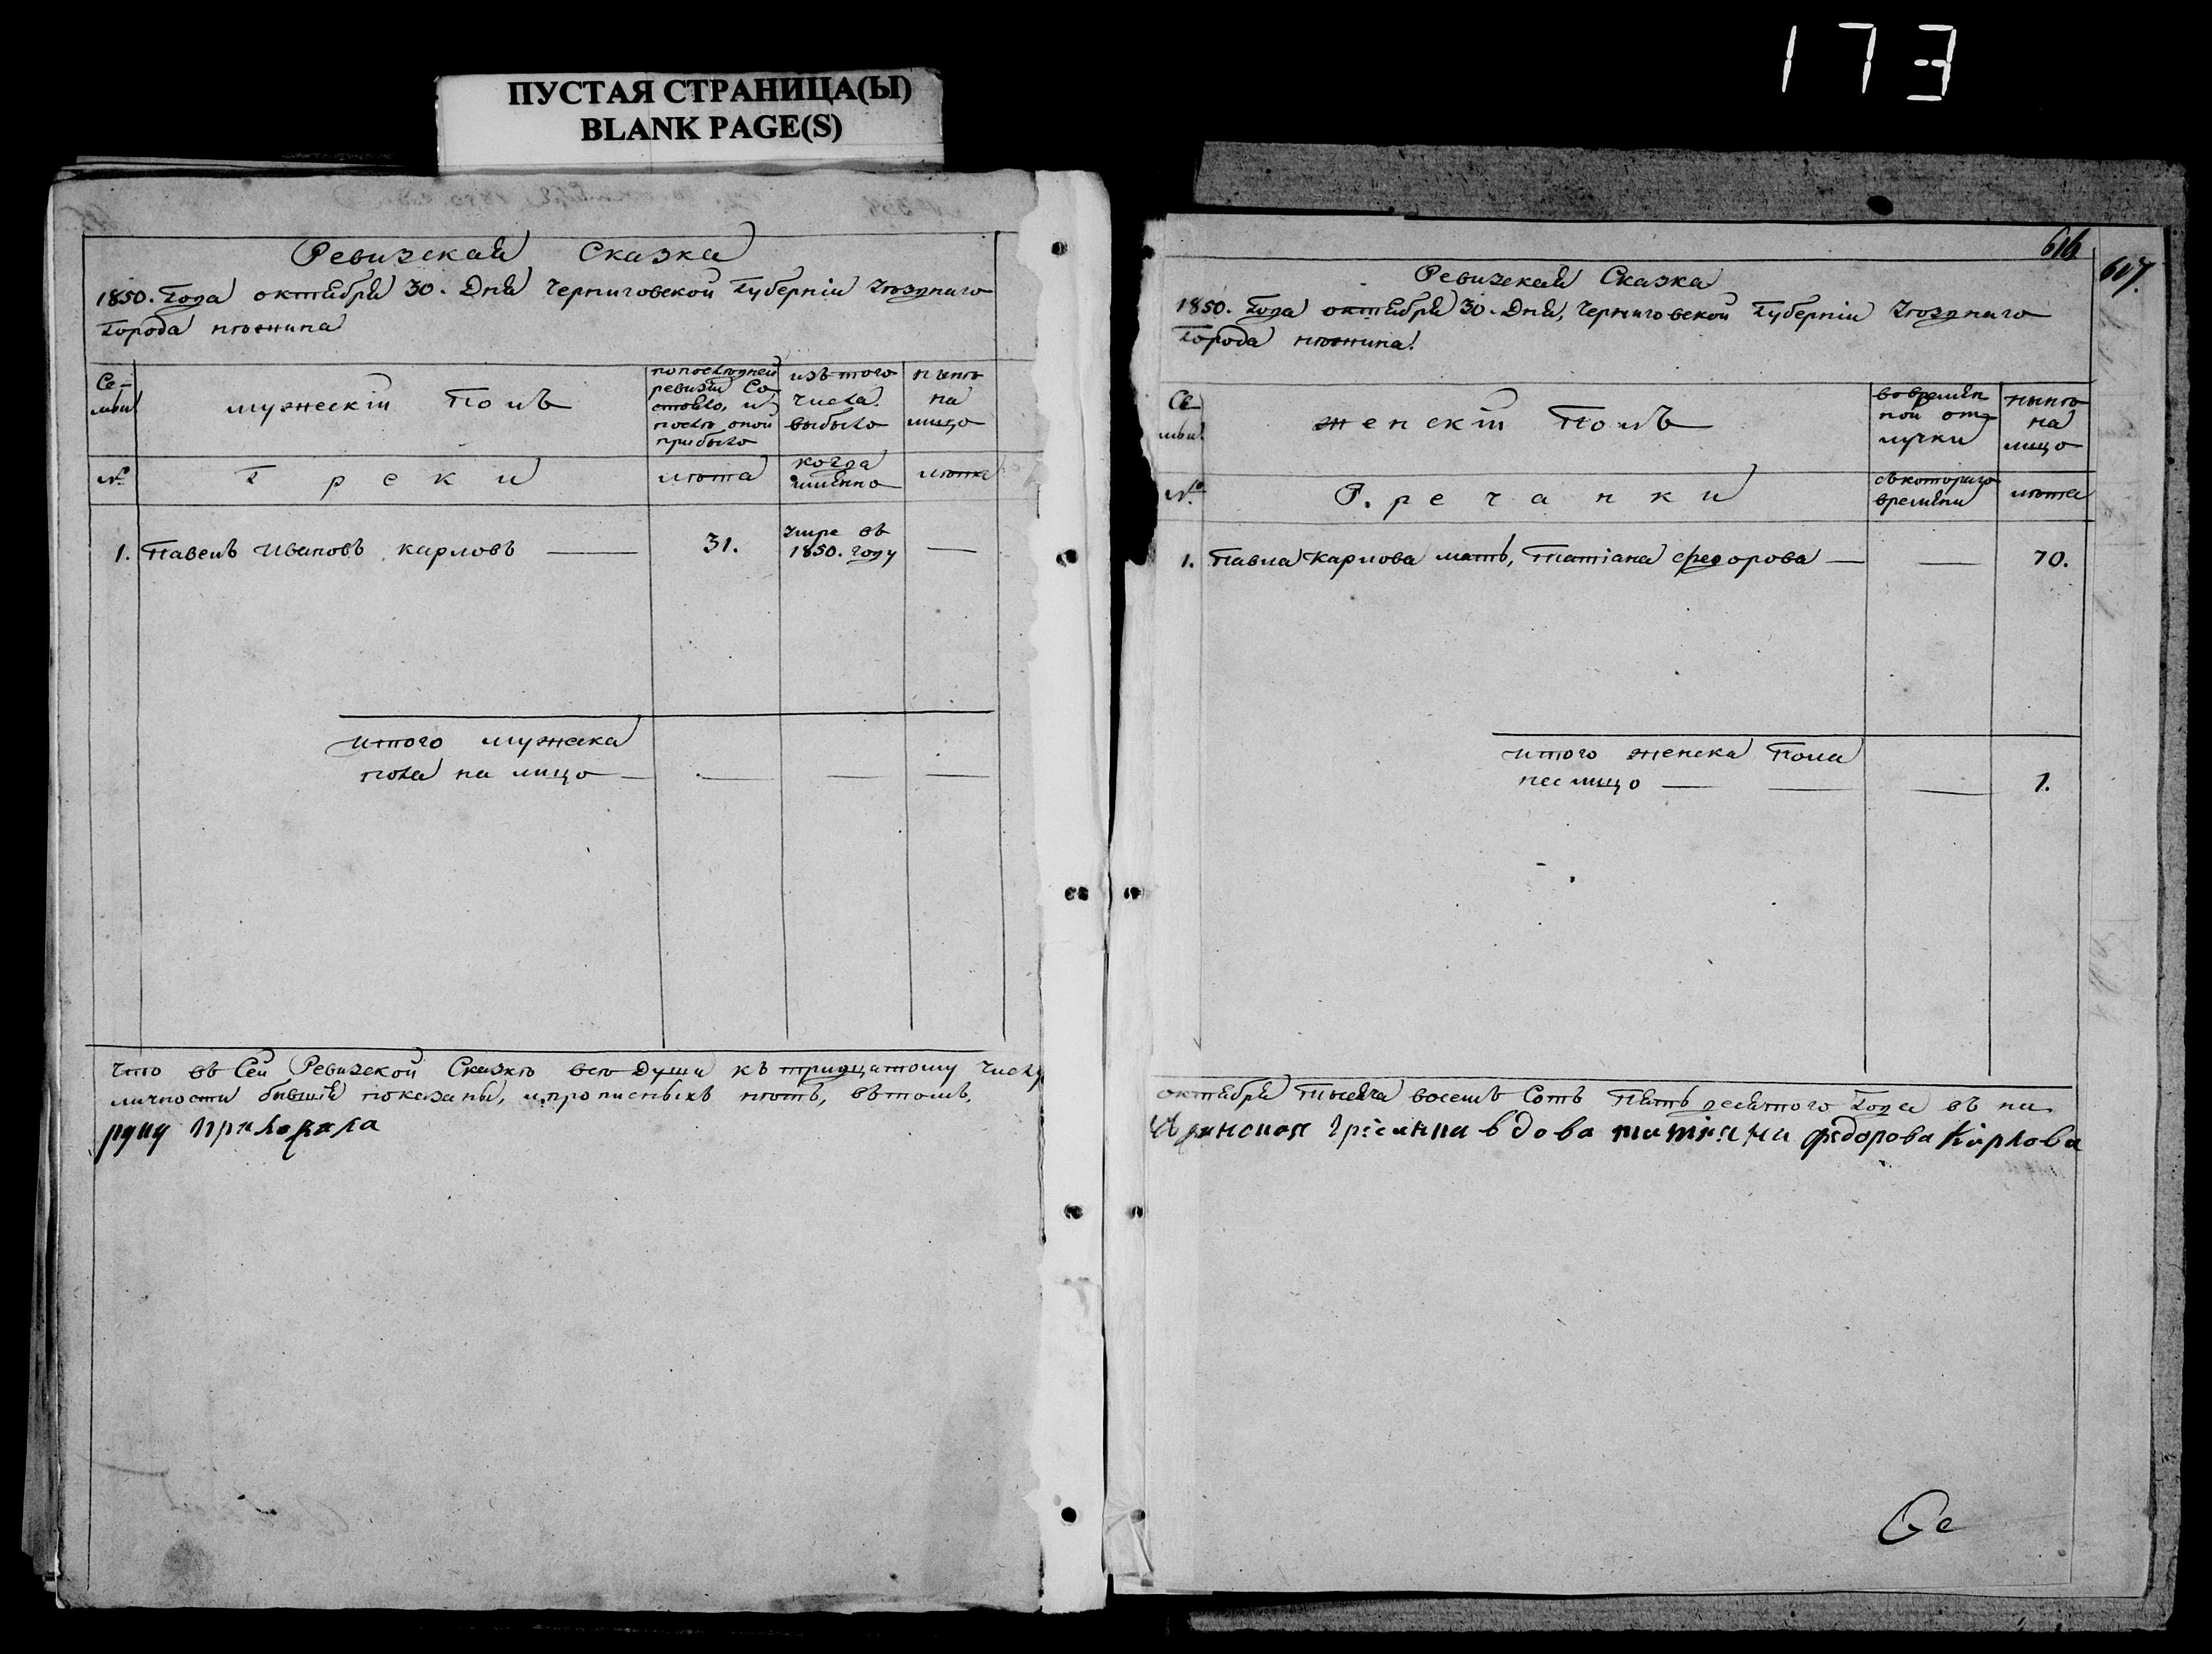 173
ПУСТАЯ СТРАНИЦА(Ы)
BLANK PAGE(S)
Ревизская Сказка
1850. Года октября 30. Дня Черниговской Губерніи Уѣзднаго
Города нѣжина
Се-
мьи
мужескій Полъ
по последней
ревизіи Со
стояло, и
послѣ оной
прибыло
изъ того
числа
выбыло
нынѣ
на
лицо
№
Греки
лѣта
когда
имянно
лѣта
1. Павелъ Ивановъ Карловъ — 31. умре въ 1850. году —
итого мужеска
пола на лицо — — — —
Что въ Сей Ревизской Сказкѣ всѣ Души къ тридцатому числу
личности бывшія показаны, и прописныхъ нѣтъ, въ томъ,
руку приложила
616
617.
Ревизская Сказка
1850. Года октября 30. Дня, Черниговской Губерніи Уѣзднаго
Города нѣжина.
Се-
мьи
женскій Полъ
во времян
ной от
лучки
нынѣ
на
лицо
№
Гречанки
съ которого
времяни
лѣта
1. Павла Карлова мать, Татіана Федорова — — 70.
итого женска Пола
на лицо — — — 1.
октября тысяча восемъ Сотъ Пять десятого Года въ на
вдова татияна федорова Карлова
Се